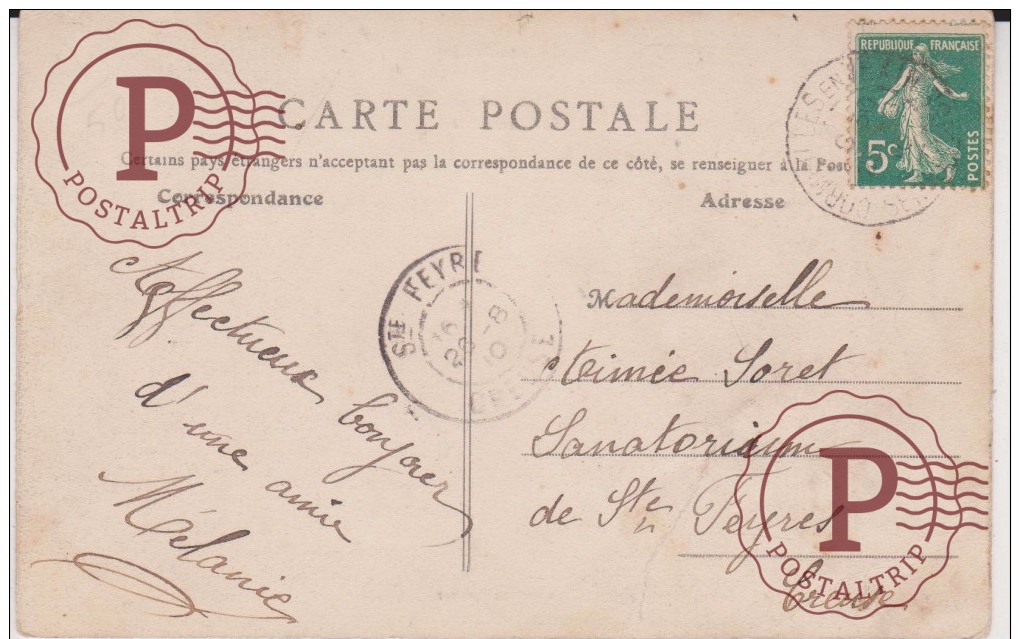 CARTE POSTALE
Certains pays étrangers n'acceptent pas la correspondance de ce côté, se renseigner à la Post
Correspondance
Adresse
Affectueux bonjour
d'une amie
Mélanie
Mademoiselle
Aimée Soret
Sanatorium
de Ste Feyres
Creuse
REPUBLIQUE FRANÇAISE
5c
POSTES
STE FEYRE
16
8
26
10
CREUSE
P
POSTALTRIP
P
POSTALTRIP